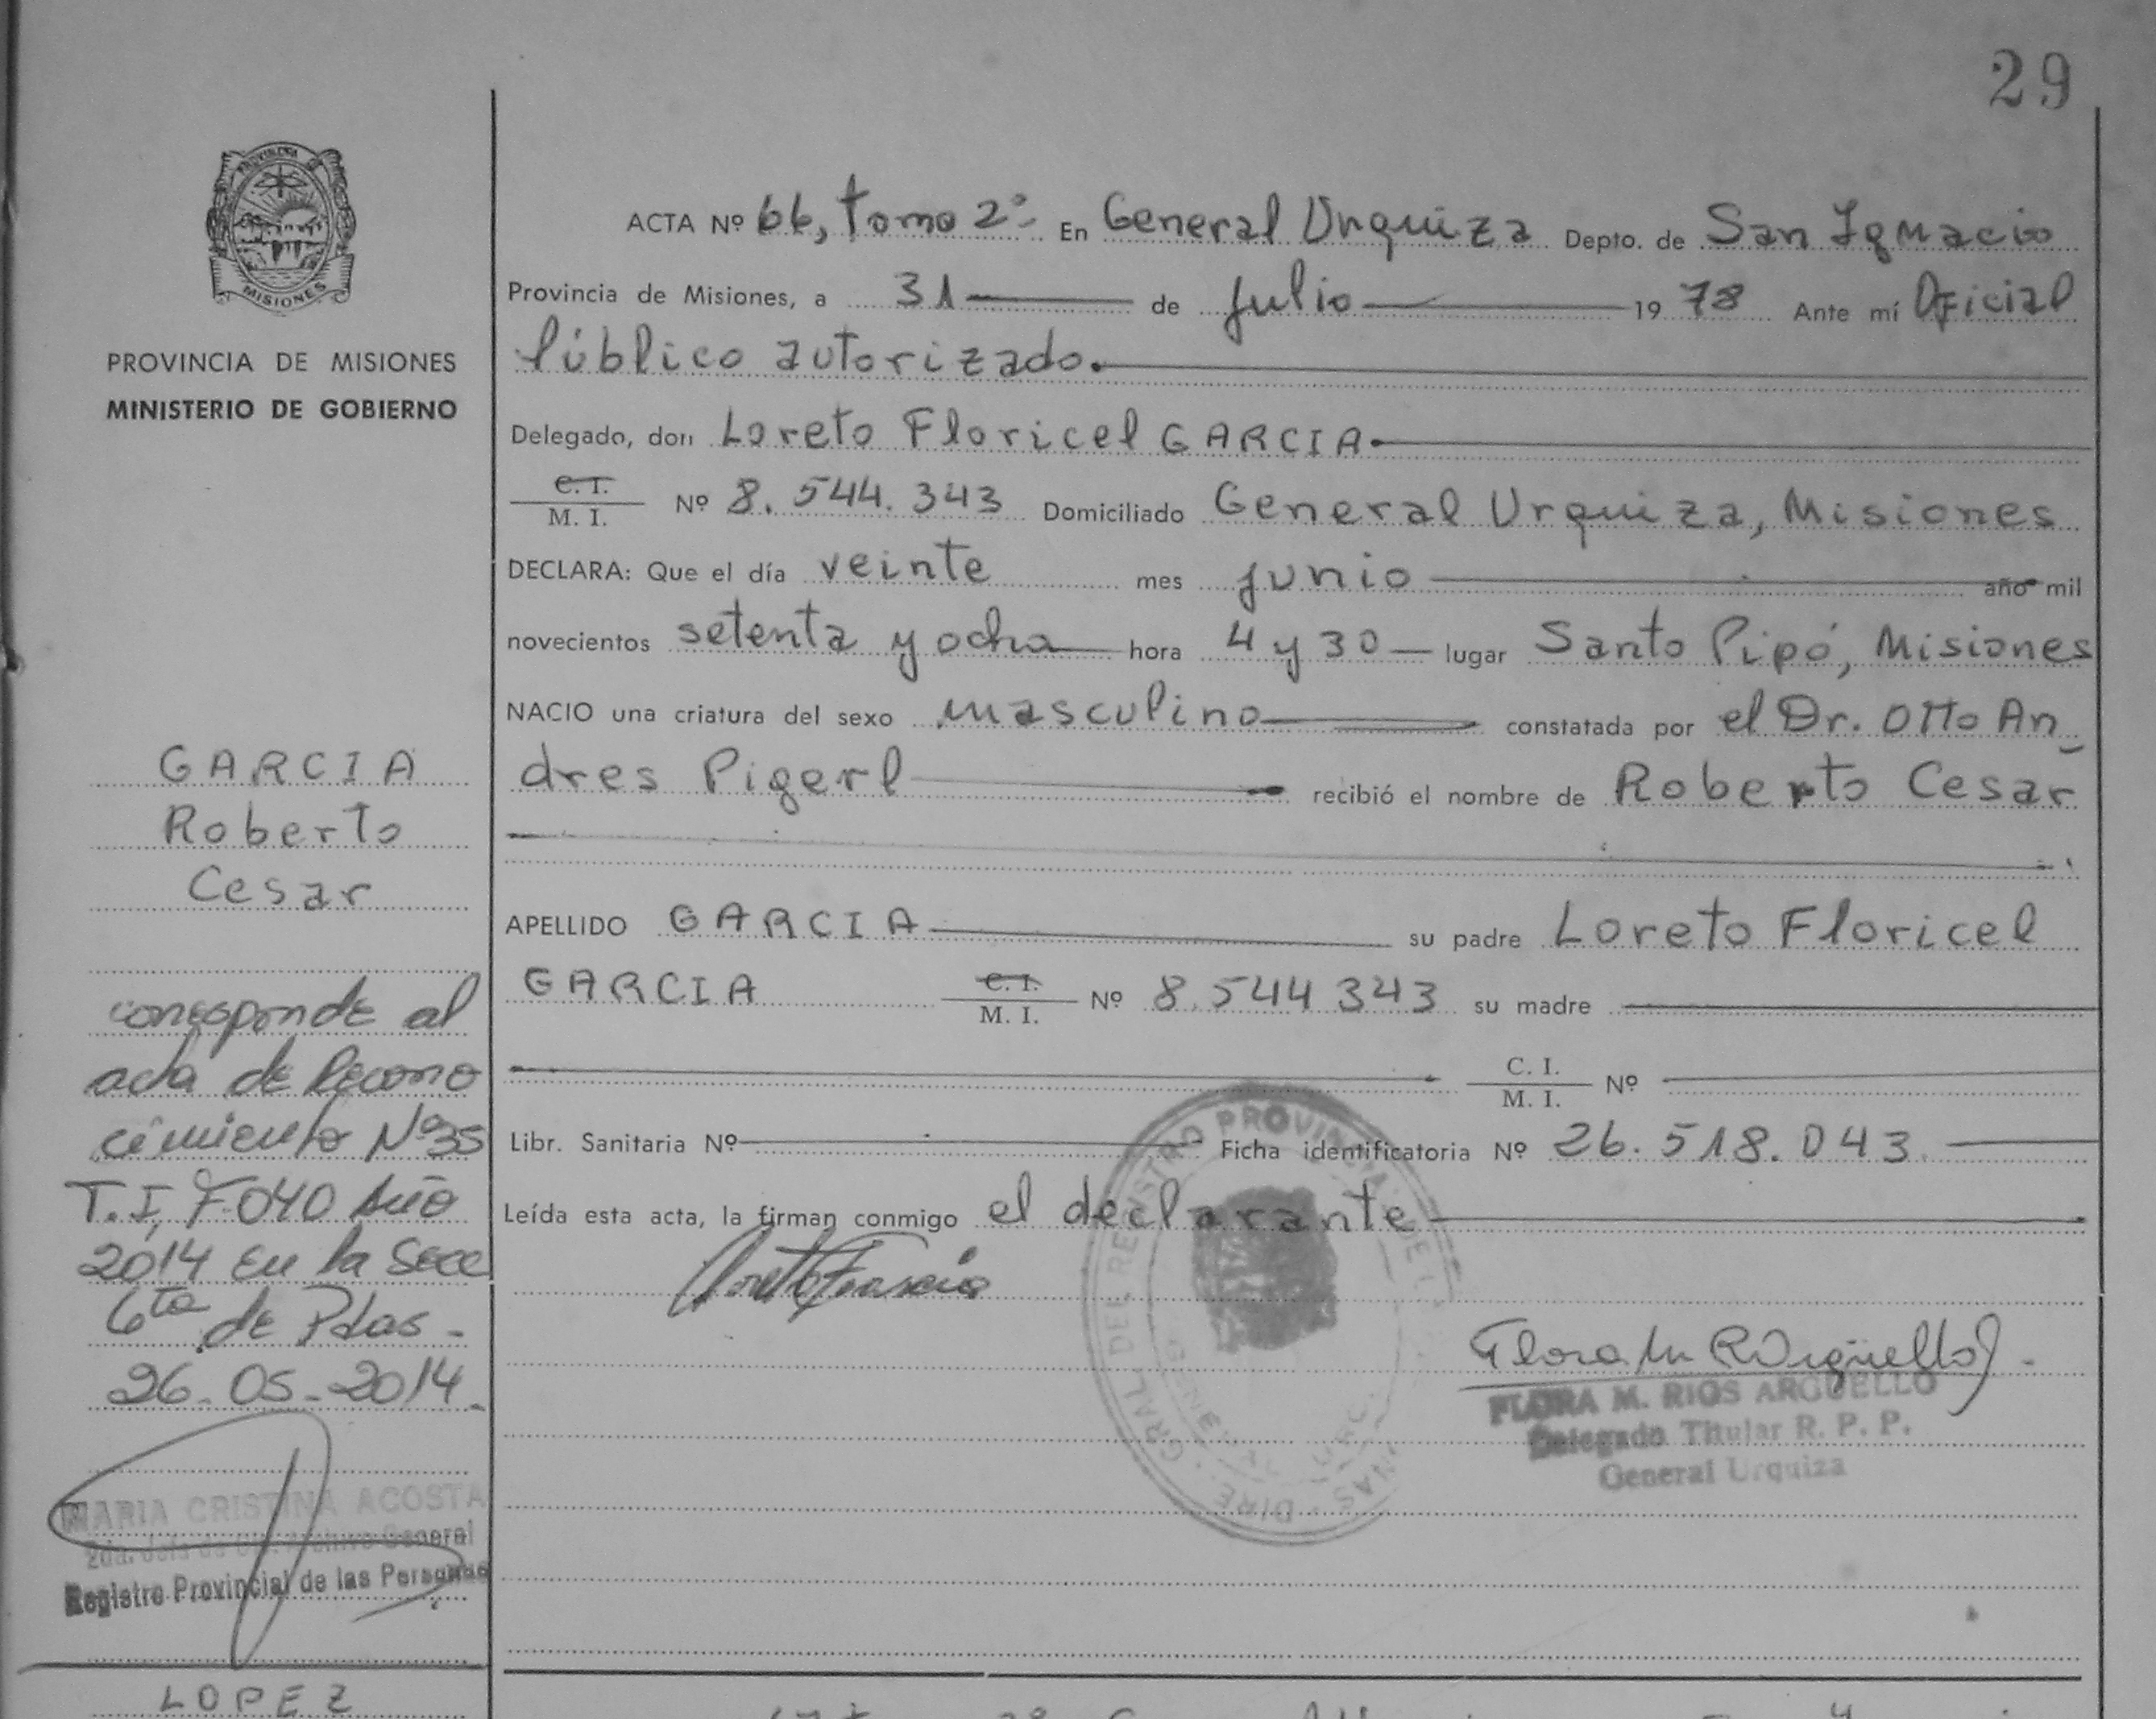 29
PROVINCIA DE MISIONES
PROVINCIA DE MISIONES
MINISTERIO DE GOBIERNO
ACTA Nº 66, tomo 2º- En General Urquiza Depto. de San Ignacio
Provincia de Misiones, a 31 de julio 1978 Ante mí Oficial
Público autorizado.
Delegado, don Loreto Floricel GARCIA
C. I.
M. I. Nº 8.544.343 Domiciliado General Urquiza, Misiones
DECLARA: Que el día veinte mes junio año mil
novecientos setenta y ocho hora 4 y 30 lugar Santo Pipó, Misiones
NACIO una criatura del sexo masculino constatada por el Dr. Otto An_
dres Pigerl recibió el nombre de Roberto Cesar
APELLIDO GARCIA su padre Loreto Floricel
GARCIA C. I.
M. I. Nº 8.544 343 su madre
C. I.
M. I. Nº
Libr. Sanitaria Nº Ficha identificatoria Nº 26.518.043
Leída esta acta, la firman conmigo el declarante
FLORA M. RIOS ARGÜELLO
Delegado Titular R. P. P.
General Urquiza
GARCIA
Roberto
Cesar
corresponde al
acta de Recono
cimiento Nº 35
T.I, F.040 Año
2014 En la Secc
6ta de Pdas -
26-05-2014.
MARIA CRISTINA ACOSTA
Archivo General
Registro Provincial de las Personas
LOPEZ